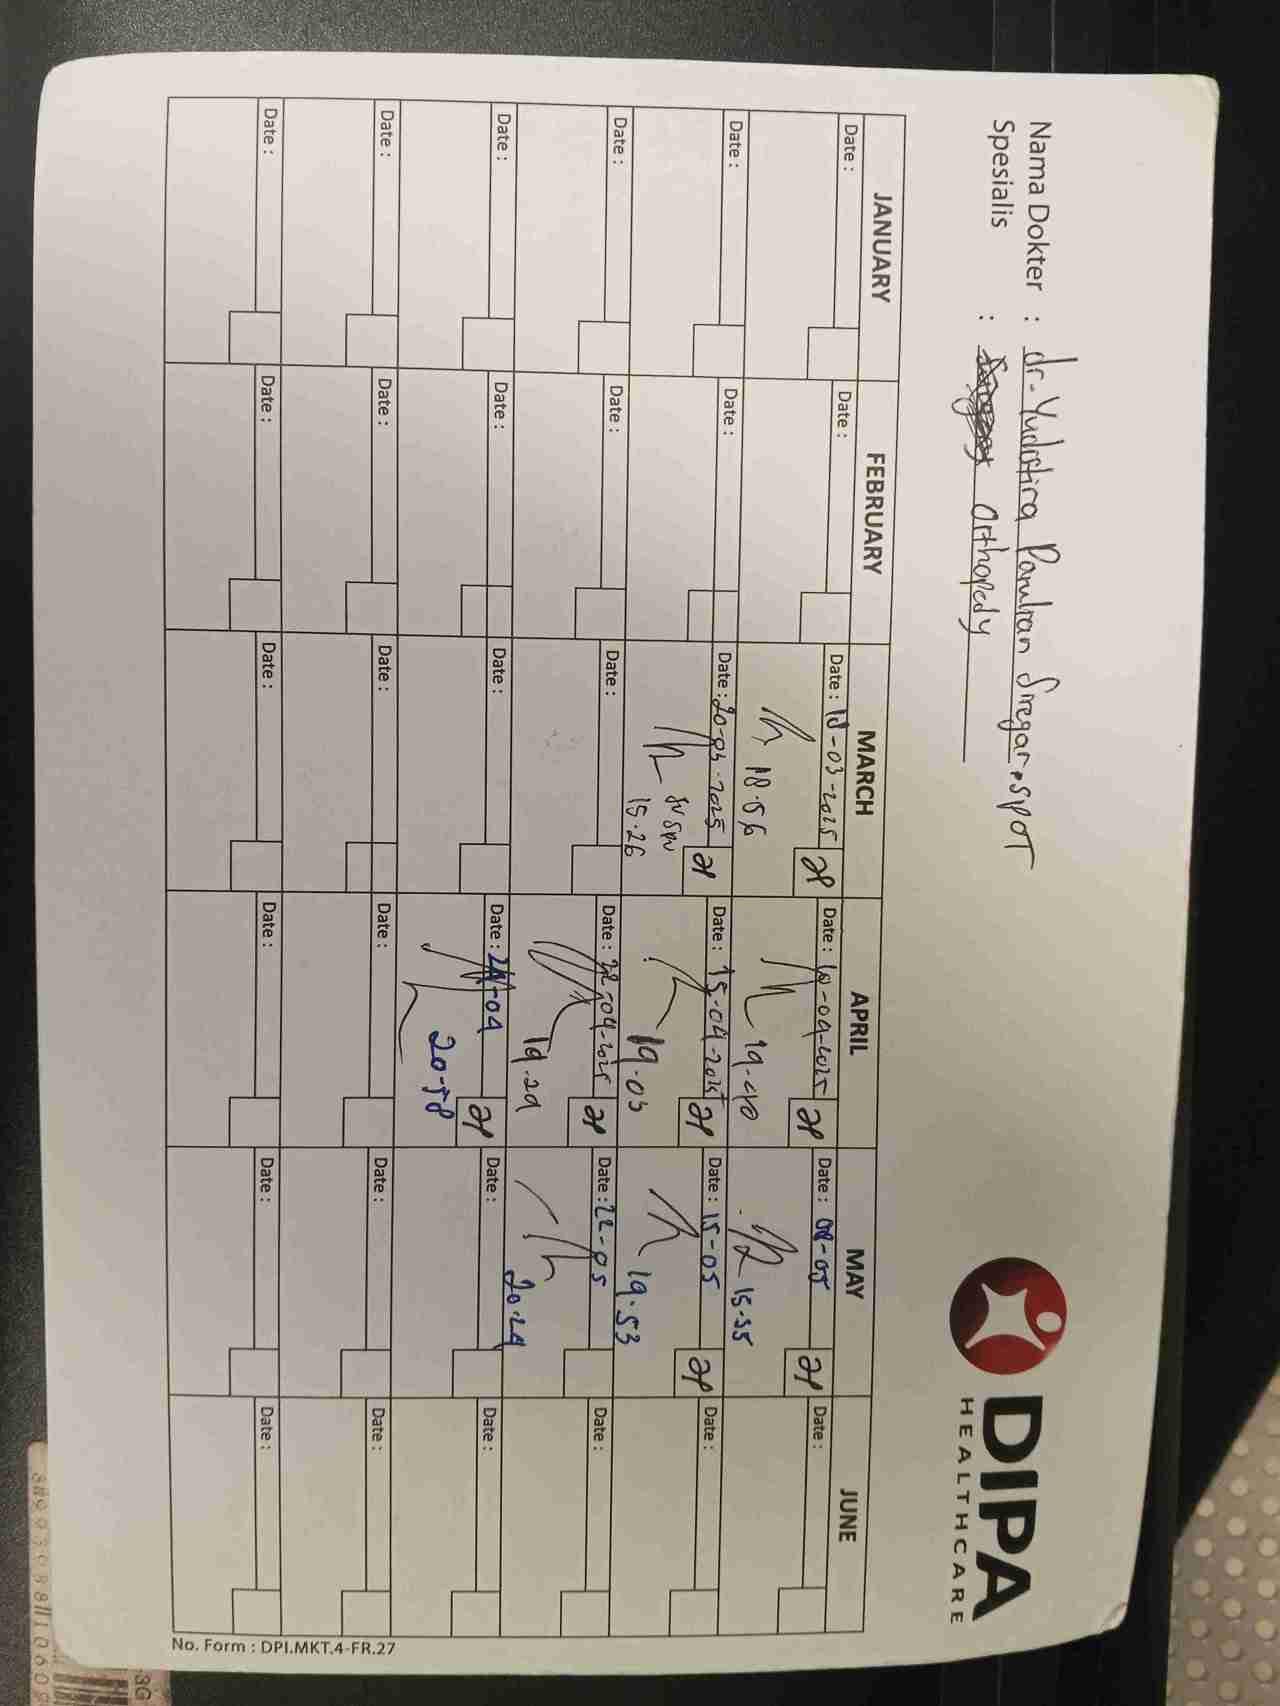 Nama Dokter : dr. Yudistira Panulian Siregar, SpOT
Spesialis : Orthopedy
DIPA
HEALTHCARE
JANUARY FEBRUARY MARCH APRIL MAY JUNE
Date : Date : Date : 18-03-2025 Date : 10-04-2025 Date : 08-05 Date :
18.56 19.40 15.55
Date : Date : Date : 20-03-2025 Date : 15-04-2025 Date : 15-05 Date :
15.26 19.03 19.53
Date : Date : Date : Date : 22-04-2025 Date : 22-05 Date :
19.29 20.29
Date : Date : Date : Date : 24-04 Date : Date :
20.58
Date : Date : Date : Date : Date : Date :
Date : Date : Date : Date : Date : Date :
No. Form : DPI.MKT.4-FR.27